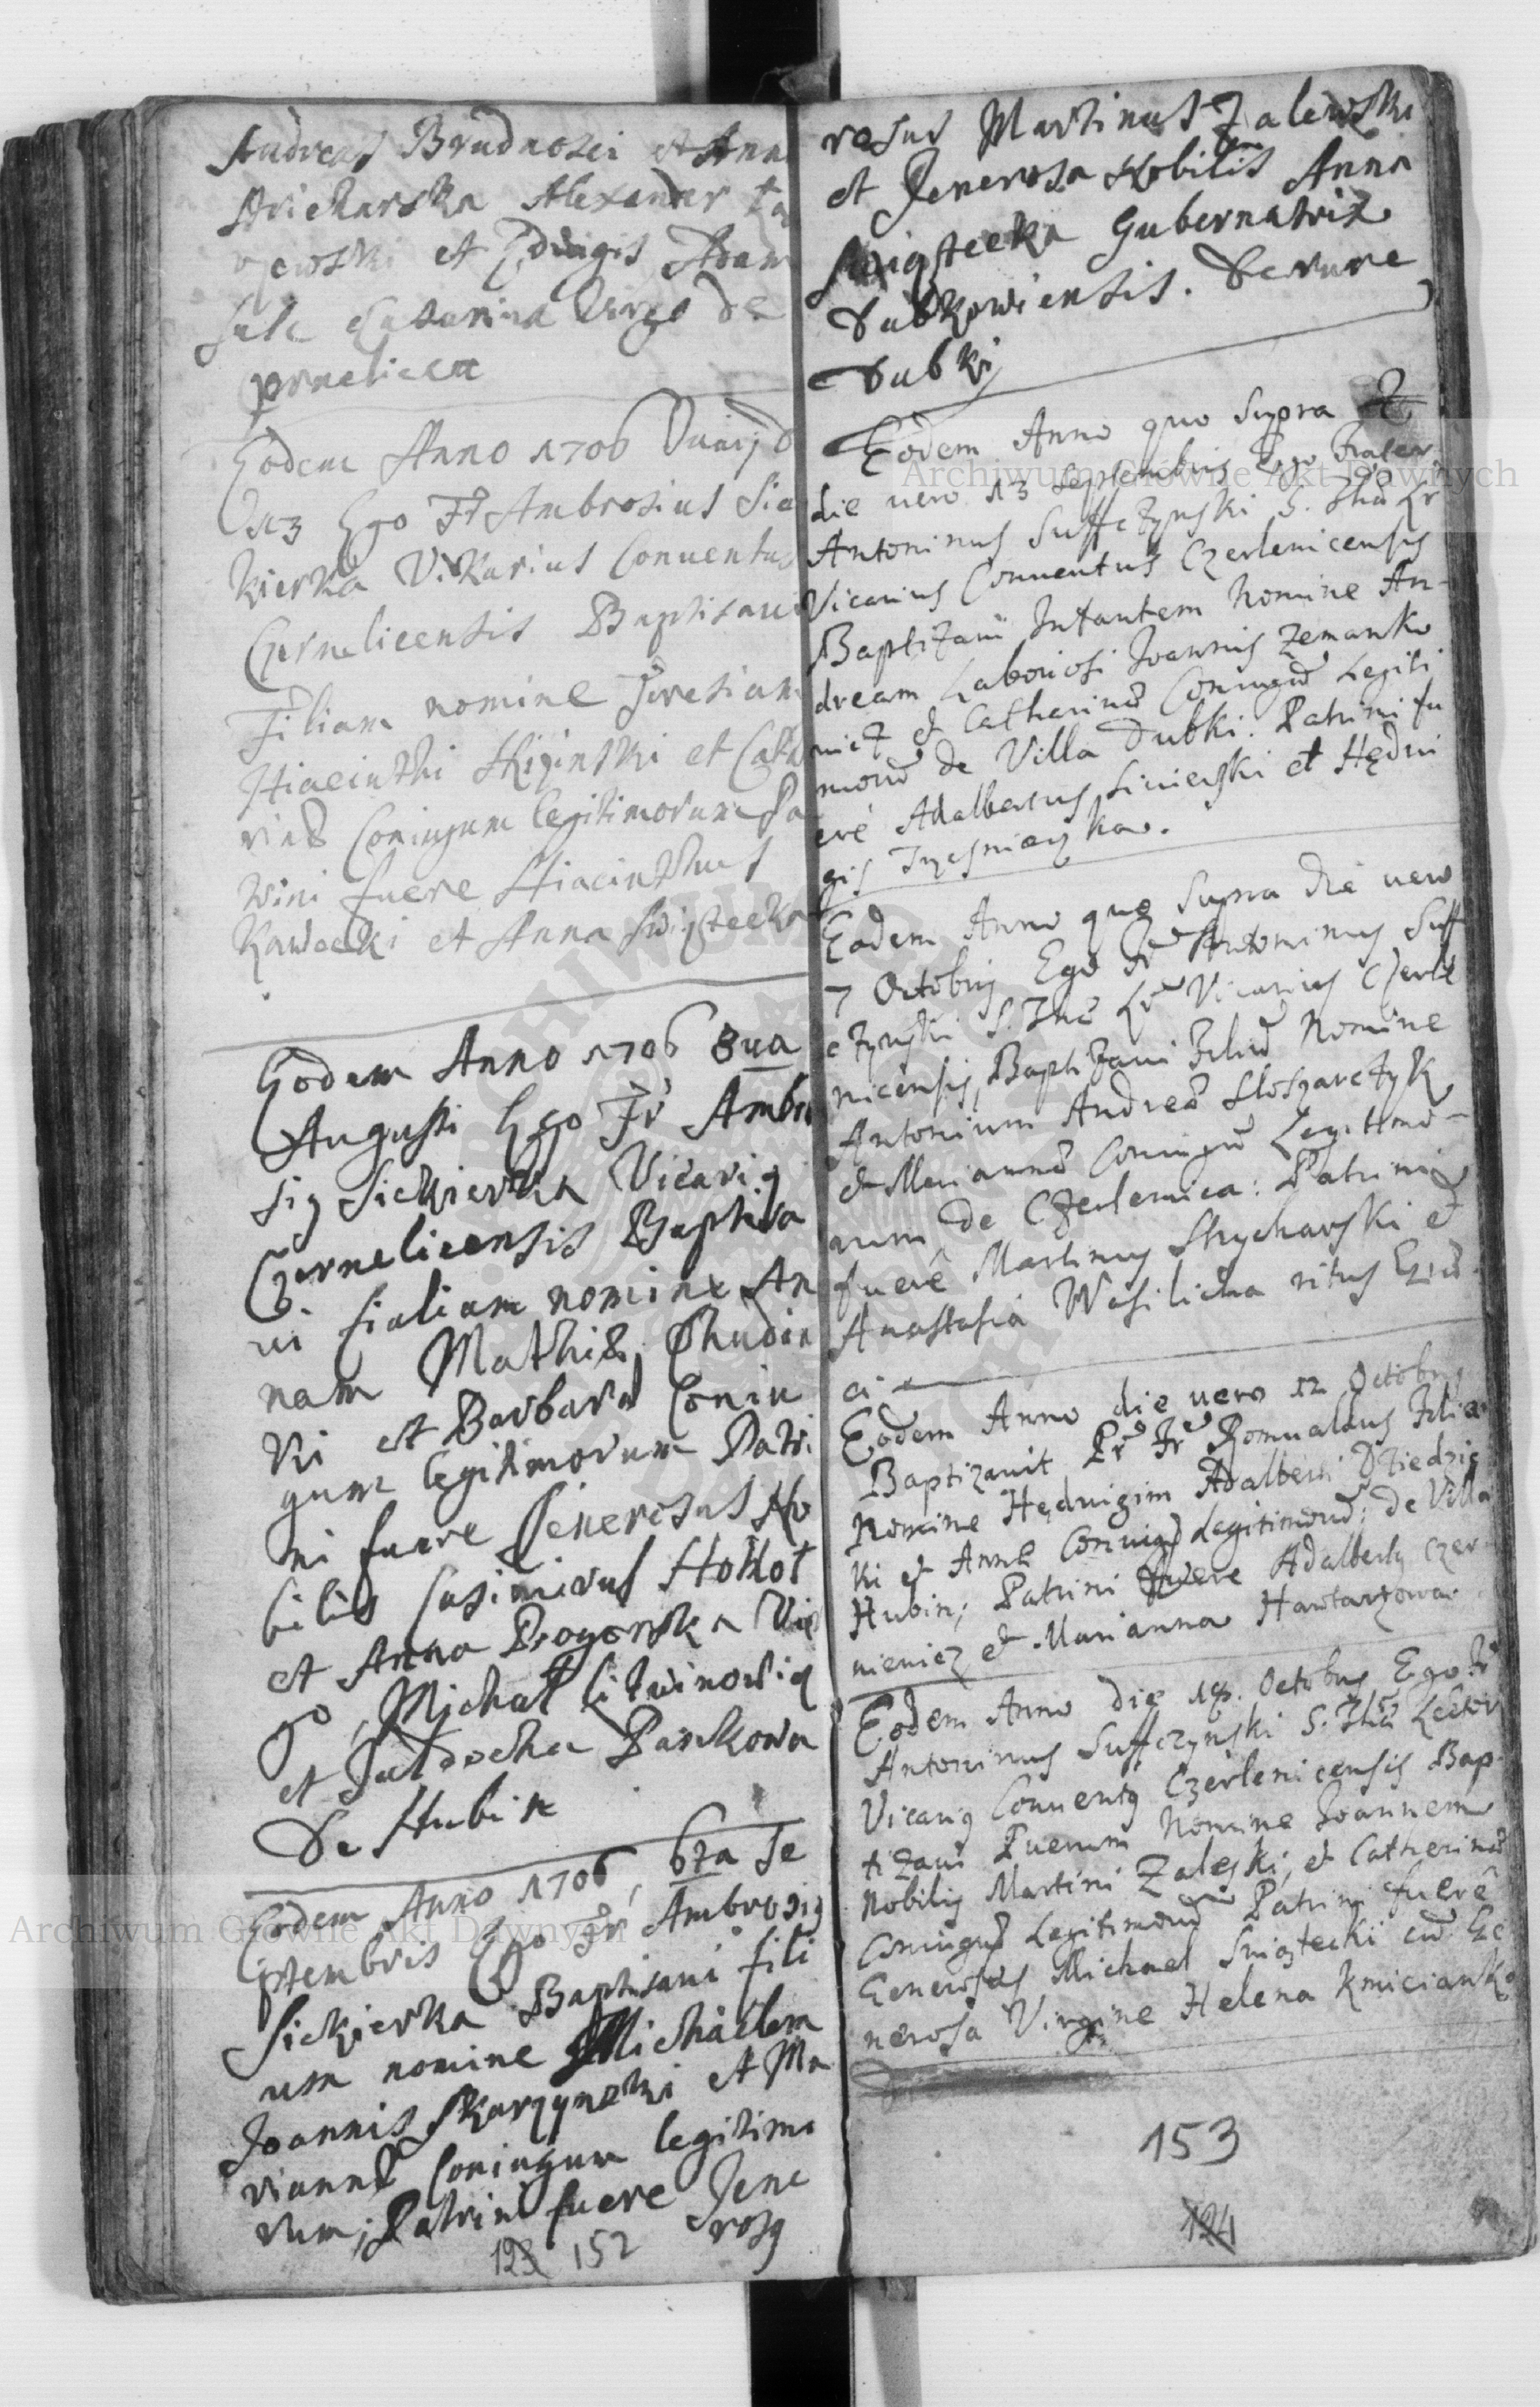 Andreas Brudnosci et Anna
Stricharska Alexander
et Edvigis Adam
Catarina Virgo de
Eodem Anno 1706
Ego Fr Ambrosius Sie
kierka Vikarius Conventus
Czernelicensis Baptisavi
Filiam nomine Teresiam
Hiacinthi et Catha
rinæ Coniugum legitimorum Pa
trini fuere Hiacinthus
Kawecki et Anna Swigtecka
Eodem Anno 1706 8va
Augusti Ego Fr Ambro
sig Siekierka Vicarig
Czernelicensis Baptisa
vi fialiam nomine An
nam Mathiæ Chudin
ki et Barbaræ Coniu
gum legitimorum Patri
ni fuere Generosus No
bilis Casimirus Hollot
et Anna Progowska Vir
go, Michał Litwinowig
et Jadocha Pankowa
De Hubin
Eodem Anno 1706, 6ta Se
ptembris Ego Fr Ambrosig
Siekierka Baptisavi fili
um nomine Michaelem
Joannis Skarzynski et Ma
riannæ Coniugum legitimo
rum; Patrini fuere Gene
rosg
123 152
rosus Martinus Zalewski
et Generosa Nobilis Anna
Swigtecka Gubernatrix
Dubkowiensis. De rure
Dubki
Eodem Anno quo supra
die vero 13 Septembris Ego Frater
Antoninus Suffczynski S. Thæ Lr
Vicarius Conventus Czerlenicensis
Baptizavi Infantem Nomine An-
dream Laboriosi Joannis Zemanko
wicz et Catharinæ Coniugũ Legiti
morũ de Villa Dubki. Patrini fu
erẽ Adalbertus Siniewski et Hędvi
gis
Eodem Anno quo supra die vero
7 Octobris Ego Fr Antoninus Suff
czynski S. Thæ Lr Vicarius Czerle
nicensis, Baptizavi Filiũ Nomine
Antonium Andreæ Sloszarczyk
et Mariannæ Coniugũ Legitimo-
rum de Czerlenica: Patrini
fuerẽ Martinus Strycharski et
Anastasia Wasilicha ritus Græ
ci
Eodem Anno die vero 12 Octobris
Baptizavit Pr Fr Romualdus Filia
Nomine Hędvigim Adalberti Dziedzic
ki et Annæ Coniugũ Legitimorũ; de Villa
Hubin; Patrini fuere Adalbertg Czer
nieniez et Marianna Hawtarzowa
Eodem Anno die 14. Octobris Ego Fr
Antoninus Suffczynski S. Thæ Lector
Vicarig Conventg Czerlenicensis Bap-
tizavi Puerum Nomine Joannem
Nobilis Martini Zaleski, et Catherinæ
Coniugũ Legitimorũ Patrini fuerẽ
Generosus Michael Swigtecki cũ Ge
nerosa Virgine Helena Kmicianka
153
124
Archiwum Główne Akt Dawnych
Archiwum Główne Akt Dawnych